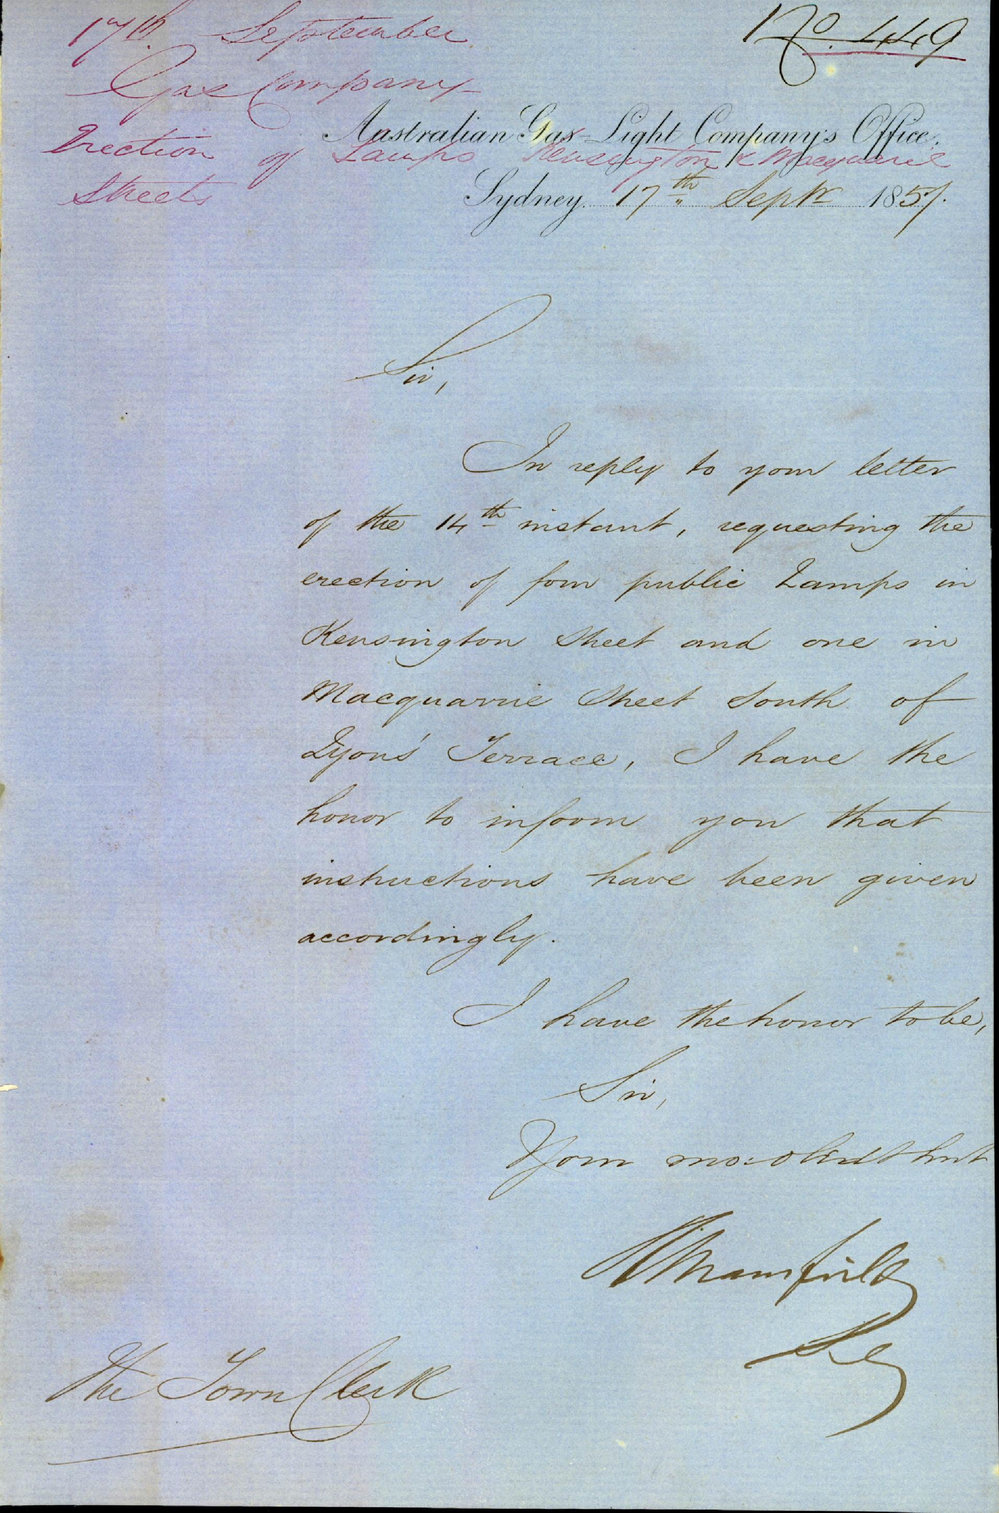 17th September
No. 449
Gas Company
Erection of Lamps Kensington & Macquarie
Streets
Australian Gas-Light Company's Office,
Sydney 17th Septr 1857.
Sir,
In reply to your letter
of the 14th instant, requesting the
erection of four public Lamps in
Kensington Street and one in
Macquarrie Street South of
Lyons' Terrace, I have the
honor to inform you that
instructions have been given
accordingly.
I have the honor to be,
Sir,
Your mo: obedt Svt
R Mansfield
Sey
The Town Clerk